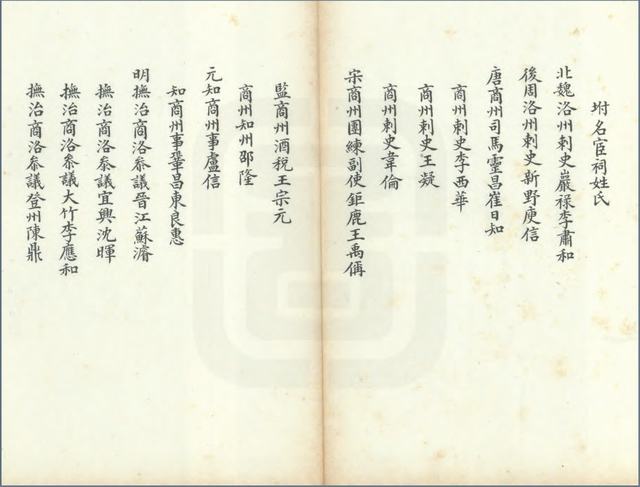 坿名宦祠姓氏
北魏洛州刺史巖祿李肅和
後周洛州刺史新野庾信
唐商州司馬靈昌崔日知
商州刺史李西華
商州刺史王凝
商州刺史韋倫
宋商州團練副使鉅鹿王禹偁
監商州酒稅王宗元
商州知州邵隆
元知商州事盧信
知商州事鞏昌東良惠
明撫治商洛叅議晉江蘇濬
撫治商洛叅議宜興沈暉
撫治商洛叅議大竹李應和
撫治商洛叅議登州陳鼎